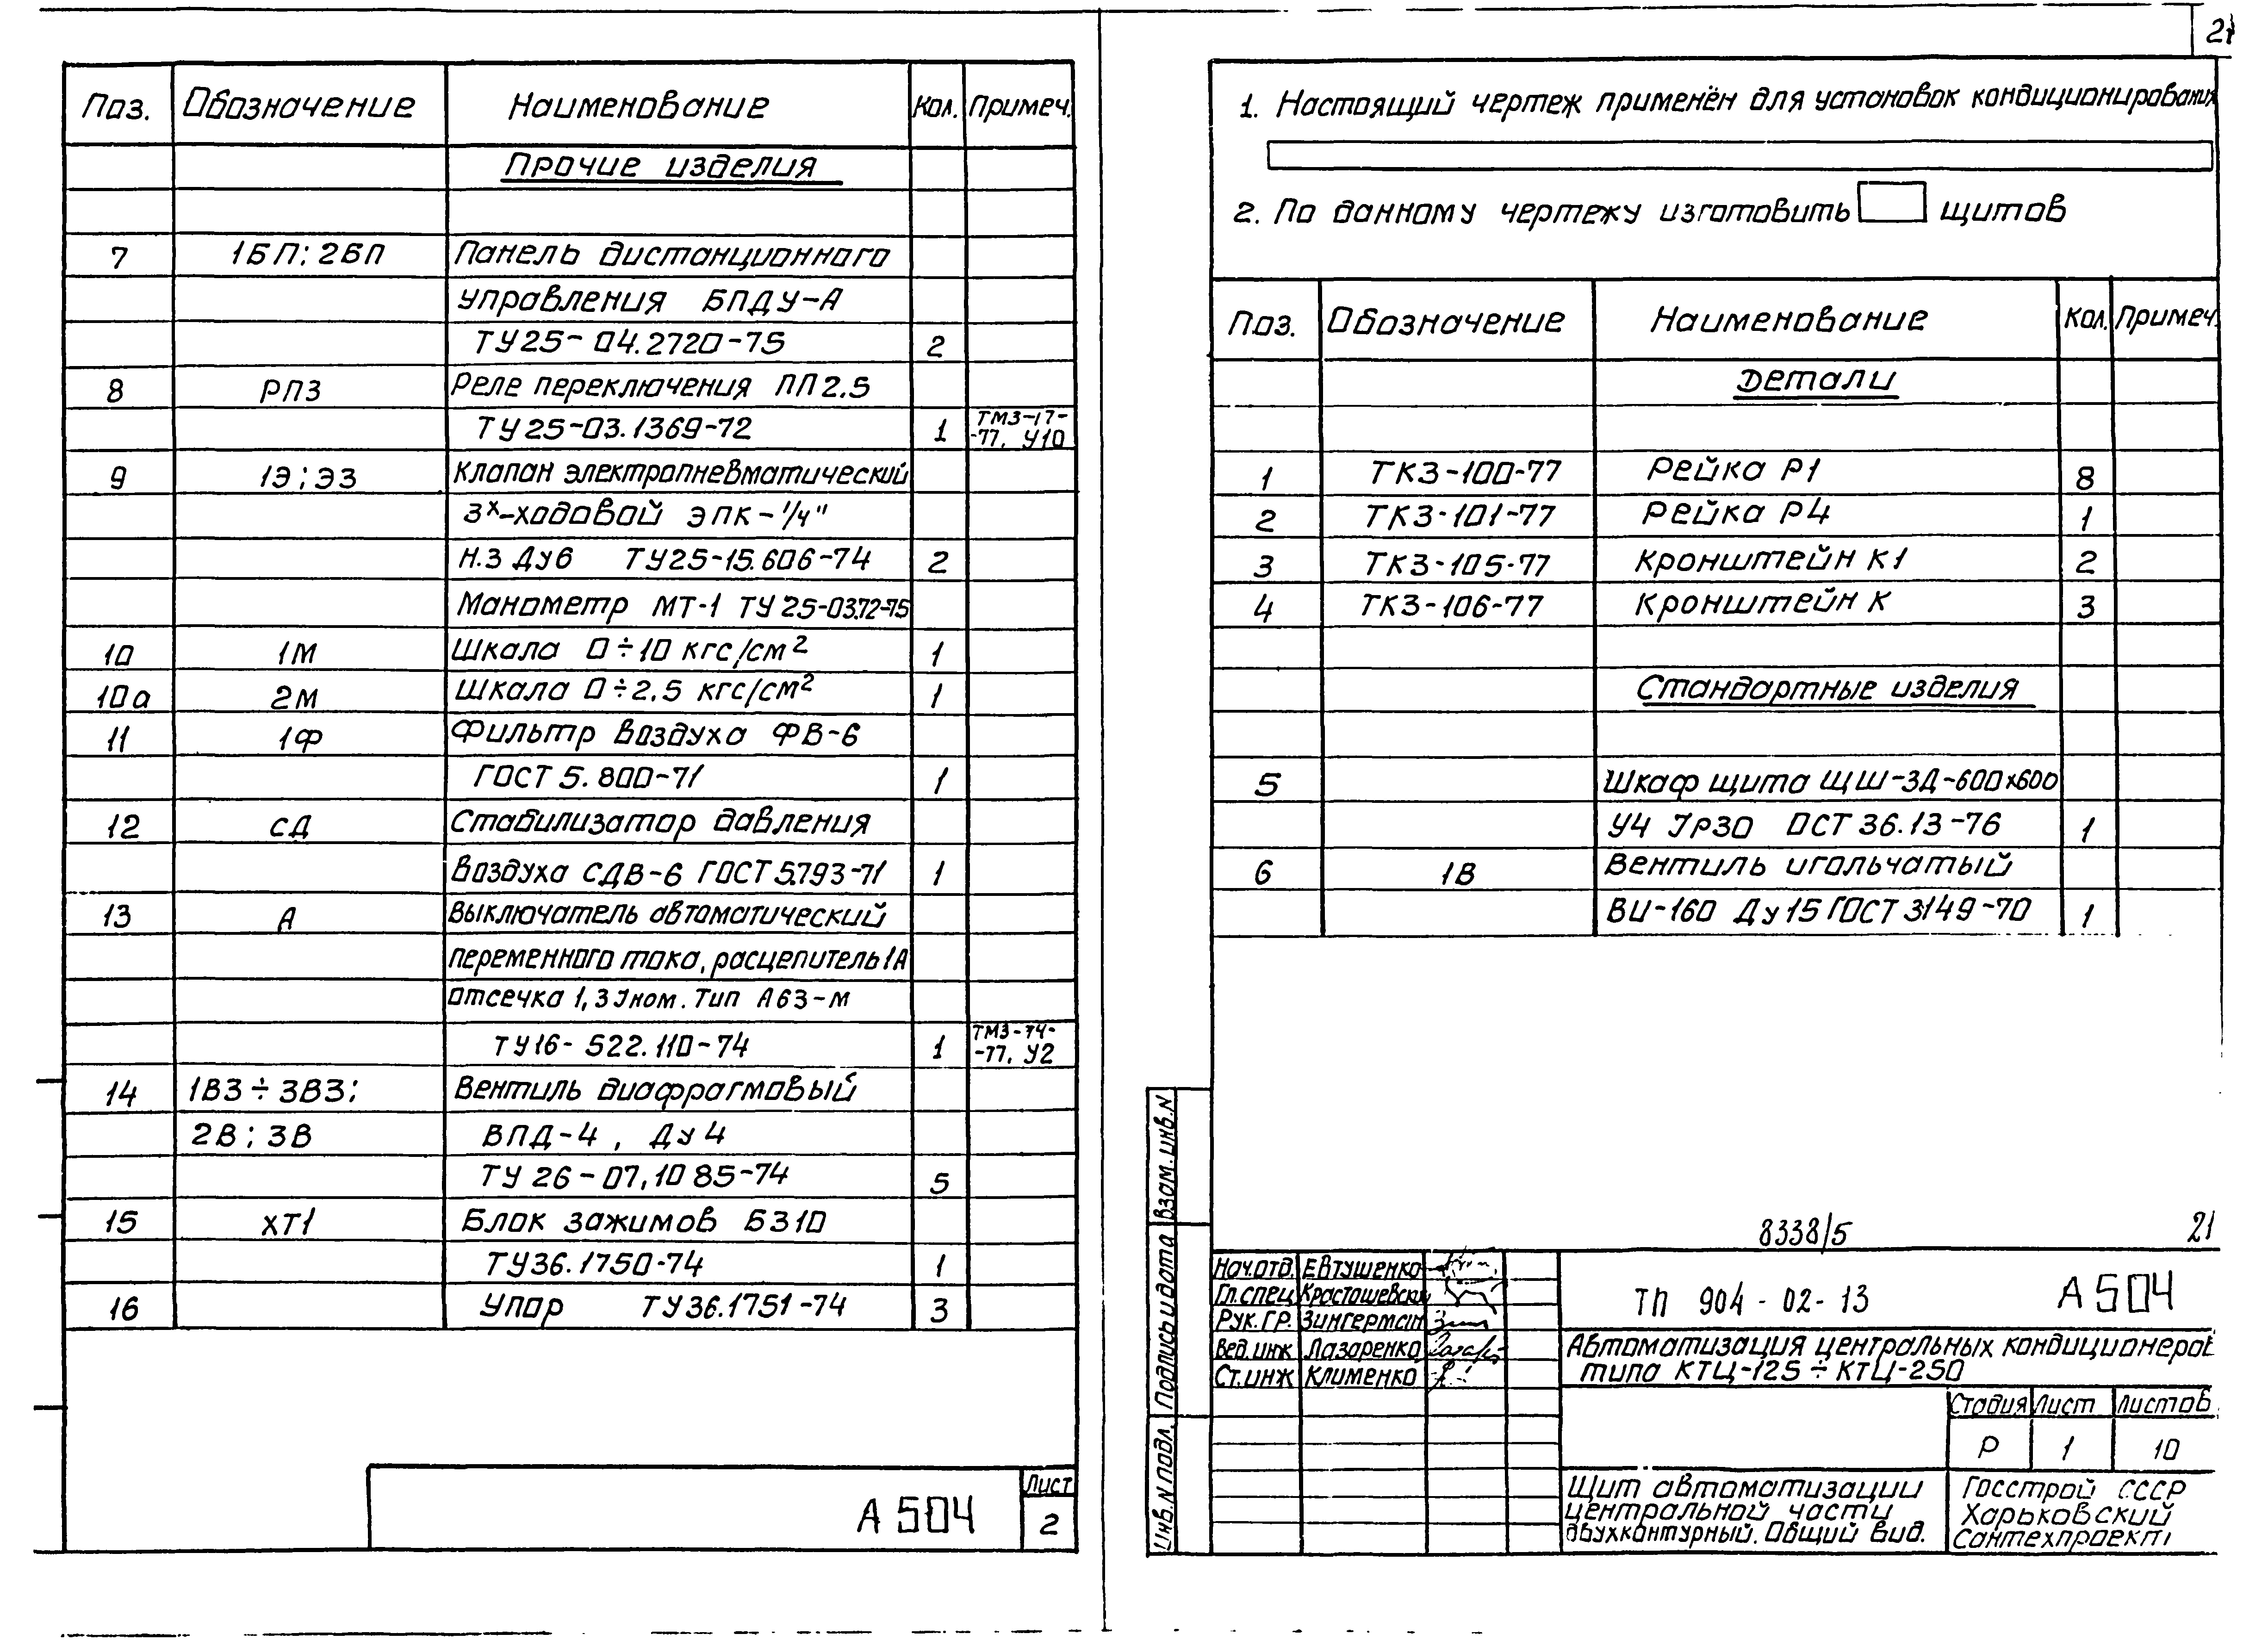 Поз. Обозначение Наименование Кол. Примеч.
Прочие изделия
7 1БП; 2БП Панель дистанционного
управления БПДУ-А
ТУ25-04.2720-75 2
8 РП3 Реле переключения ПП2.5
ТУ25-03.1369-72 1 ТМ3-17-
-77, У10
9 1Э; ЭЗ Клапан электропневматический
3х-ходовой ЭПК-1/4"
Н.З Ду6 ТУ25-15.606-74 2
Манометр МТ-1 ТУ25-03.72-75
10 1М Шкала 0÷10 кгс/см2 1
10а 2М Шкала 0÷2.5 кгс/см2 1
11 1Ф Фильтр воздуха ФВ-6
ГОСТ 5.800-71 1
12 СД Стабилизатор давления
воздуха СДВ-6 ГОСТ 5.793-71 1
13 А Выключатель автоматический
переменного тока, расцепитель 1А
отсечка 1,3 Iном. Тип А63-М
ТУ16-522.110-74 1 ТМ3-74-
-77, У2
14 1В3÷3В3; Вентиль диафрагмовый
2В; 3В ВПД-4, Ду4
ТУ 26-07,1085-74 5
15 ХТ1 Блок зажимов БЗ10
ТУ36.1750-74 1
16 Упор ТУ36.1751-74 3
А504
Лист
2
21
1. Настоящий чертеж применён для установок кондиционирования
2. По данному чертежу изготовить щитов
Поз. Обозначение Наименование Кол. Примеч.
Детали
1 ТК3-100-77 Рейка Р1 8
2 ТК3-101-77 Рейка Р4 1
3 ТК3-105-77 Кронштейн К1 2
4 ТК3-106-77 Кронштейн К 3
Стандартные изделия
5 Шкаф щита ЩШ-ЗД-600х600
У4 IР30 ОСТ 36.13-76 1
6 1В Вентиль игольчатый
ВИ-160 Ду15 ГОСТ 3149-70 1
Взам. инв. N
Подпись и дата
Инв. N подл.
8338/5 21
Нач.отд. Евтушенко
Гл.спец Красташевский
Рук.гр. Зингерман
Вед.инж Лазаренко
Ст.инж Клименко
ТП 904-02-13 А504
Автоматизация центральных кондиционеров
типа КТЦ-125÷КТЦ-250
Стадия Лист Листов
Р 1 10
Щит автоматизации
центральной части
двухконтурный. Общий вид.
Госстрой СССР
Харьковский
Сантехпроект